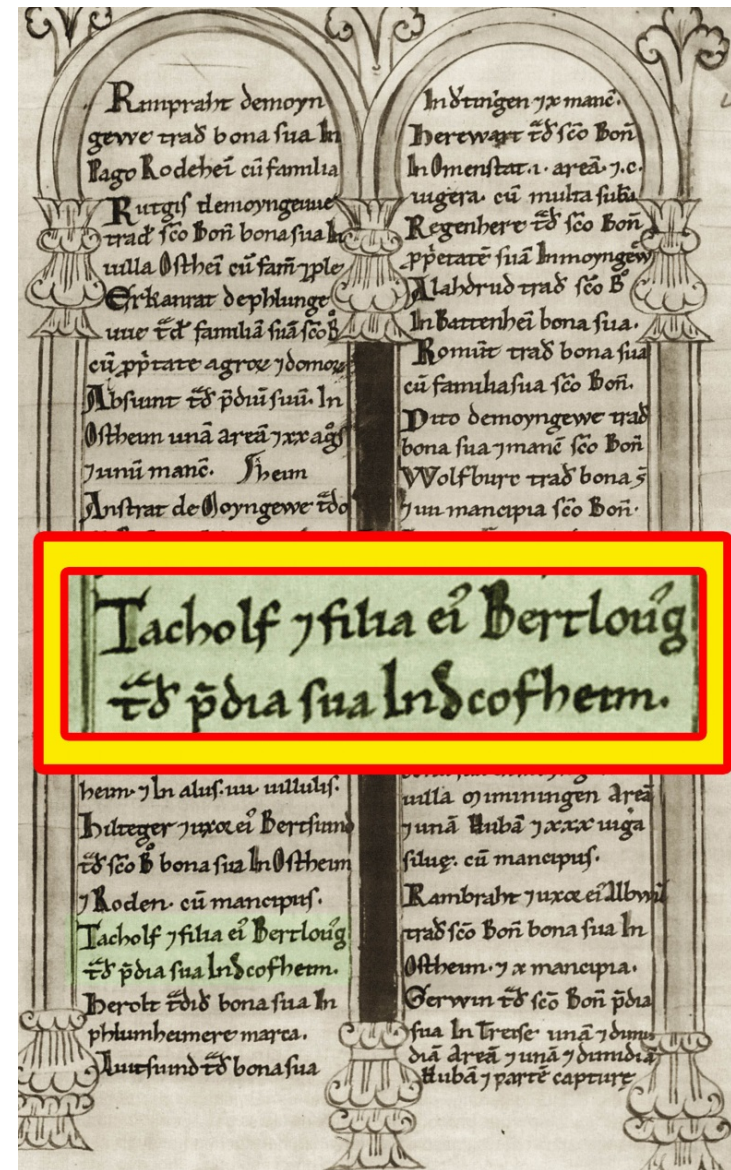 Rampraht demoyn
gewe trad bona sua In
Pago Rodehei cū familia
Rutgis demoyngewe
trad sco Bon bona sua In
uilla Osthei cū fam ⁊ ple
Erkanrat dephlunge
uue td familiā suā sco B
cū ppetate agroꝝ ⁊ domoꝝ
Absunt td pdiū suū. In
Ostheim unā areā ⁊ xx
⁊ unū manc.
Anstrat de Moyngewe tdo
Tacholf ⁊ filia ei Bertloug
td pdia sua In
heim. ⁊ In aliis. uillulis.
Hilteger ⁊ uxoꝝ ei Bertsund
td sco B bona sua In Ostheim
⁊ Roden. cū mancipiis.
Tacholf ⁊ filia ei Bertloug
td pdia sua In
Herolt bona sua In
phlumheimere marca.
td bona sua
⁊ x manc.
Herewart td sco Bon
In Omenstat. i. areā. ⁊. c.
iugera. cū multa
Regenhere td sco Bon
ppetatē suā Inmoyngew
Alahdrud trad sco B
In Battenhei bona sua.
trad bona sua
cū familia sua sco Bon.
demoyngewe trad
bona sua ⁊ manc sco Bon
Wolfburc trad bona s
mancipia sco Bon.
uilla Miminingen Areā
⁊ unā Hubā ⁊ xxx iuga
siluę. cū mancipiis.
Rambraht ⁊ uxoꝝ ei
trad sco Bon bona sua In
Ostheim. ⁊ x mancipia.
Gerwin td sco Bon pdia
sua In Treise unā ⁊ dimi
diā Areā ⁊ unā ⁊ dimidiā
Hubā ⁊ partē capturę